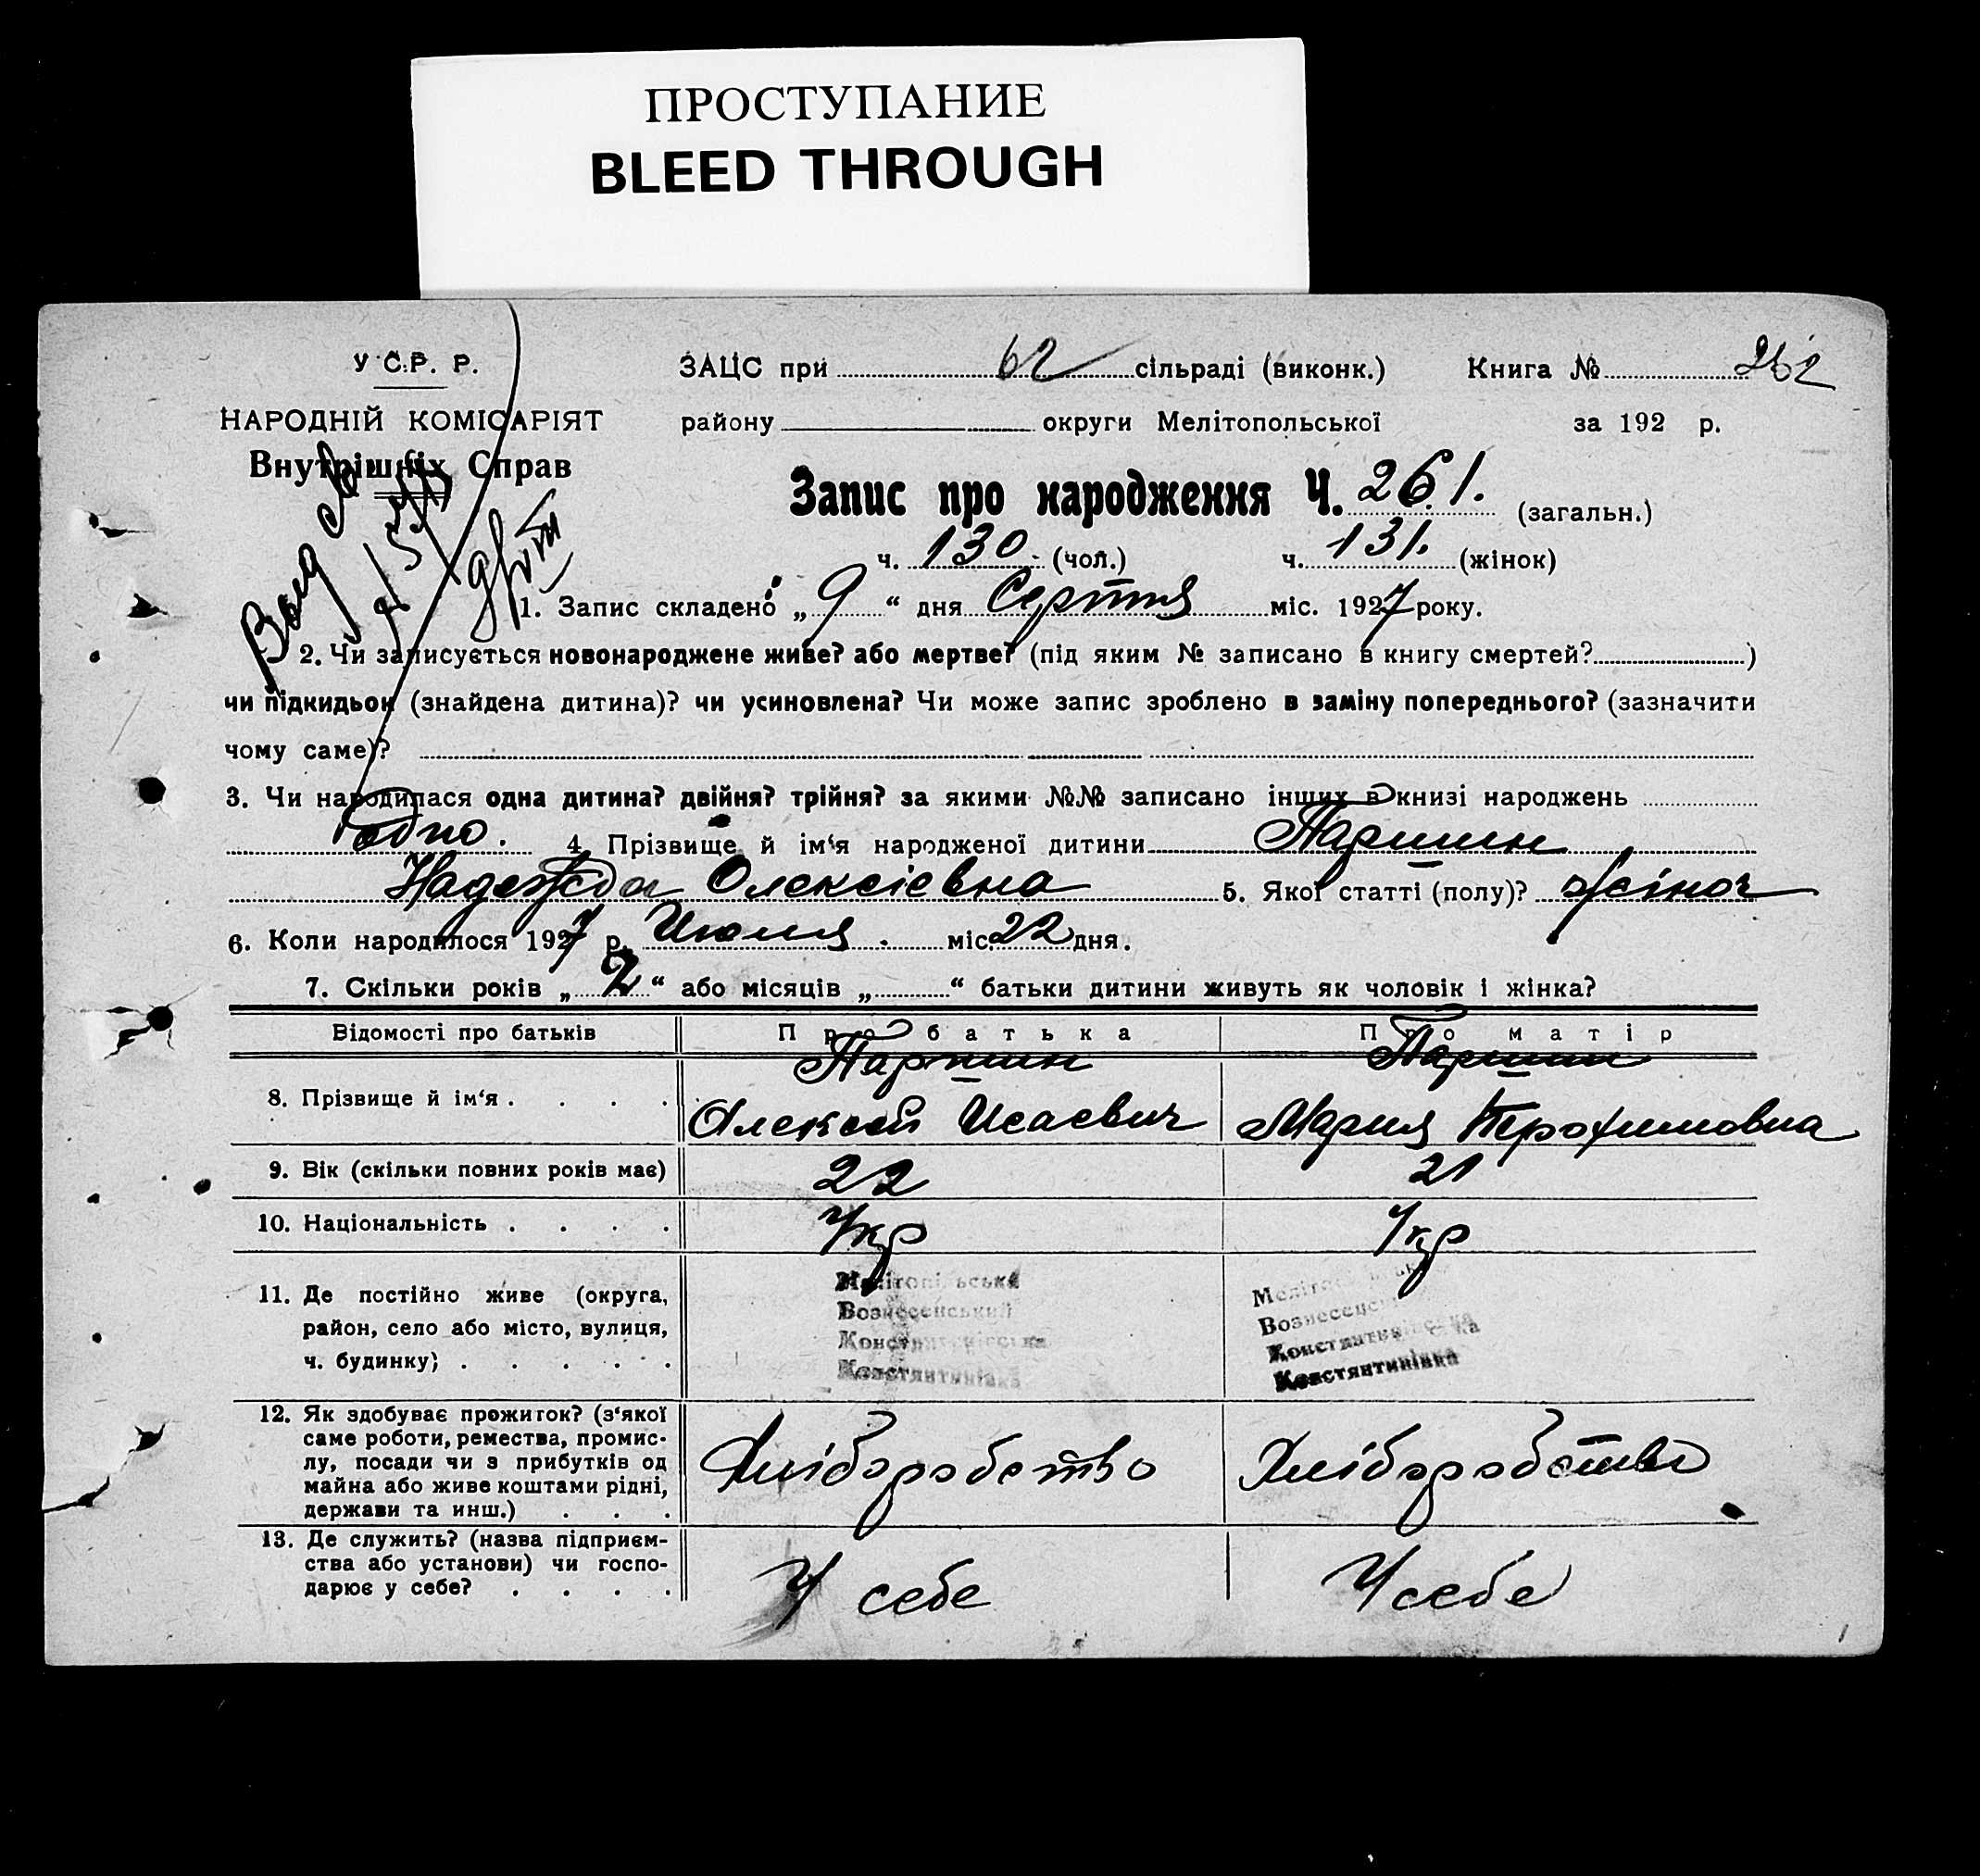 ПРОСТУПАНИЕ
BLEED THROUGH
У С.Р. Р. ЗАЦС при 62 сільраді (виконк.) Книга № 262
НАРОДНІЙ КОМІСАРІЯТ району округи Мелітопольської за 192 р.
Внутрішніх Справ
Запис про народження Ч. 261. (загальн.)
ч. 130 (чол.) ч. 131. (жінок)
1. Запис складено „ 9 “ дня Серпня міс. 1927 року.
2. Чи записується новонароджене живе? або мертве? (під яким № записано в книгу смертей? )
чи підкидьок (знайдена дитина)? чи усиновлена? Чи може запис зроблено в заміну попереднього? (зазначити
чому саме)?
3. Чи народилася одна дитина? двійня? трійня? за якими №№ записано інших в книзі народжень
одно. 4. Прізвище й ім‘я народженої дитини Паршин
Надежда Олексієвна 5. Якої статті (полу)? жіноч
6. Коли народилося 1927 р. Июля. міс. 22 дня.
7. Скільки років „ 2 “ або місяців „ “ батьки дитини живуть як чоловік і жінка?
Відомості про батьків Про батька Про матір
Паршин Паршин
8. Прізвище й ім‘я . . . . Олексей Исаевич Мария Трофимовна
9. Вік (скільки повних років має) 22 21
10. Національність . . . . Укр Укр
11. Де постійно живе (округа,
район, село або місто, вулиця,
ч. будинку) . . . . .
Вознесенський
Константинівка
Константинівка
12. Як здобуває прожиток? (з‘якої
саме роботи, ремества, промис-
лу, посади чи з прибутків од
майна або живе коштами рідні,
держави та инш.) . . .
Хліборобство Хліборобство
13. Де служить? (назва підприєм-
ства або установи) чи госпо-
дарює у себе? . . . .
У себе У себе